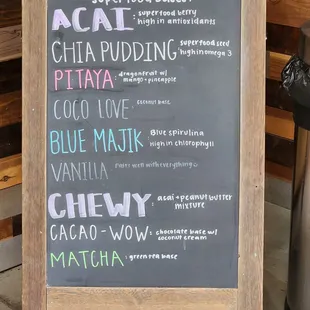 super food bases:
ACAI : superfood berry
high in antioxidants
CHIA PUDDING : superfood seed
high in omega 3
PITAYA : dragonfruit w/
mango + pineapple
COCO LOVE : coconut base
BLUE MAJIK Blue spirulina
high in chlorophyll
VANILLA : Pairs well with everything
CHEWY = acai + peanut butter
mixture
CACAO-WOW : chocolate base w/
coconut cream
MATCHA : green tea base